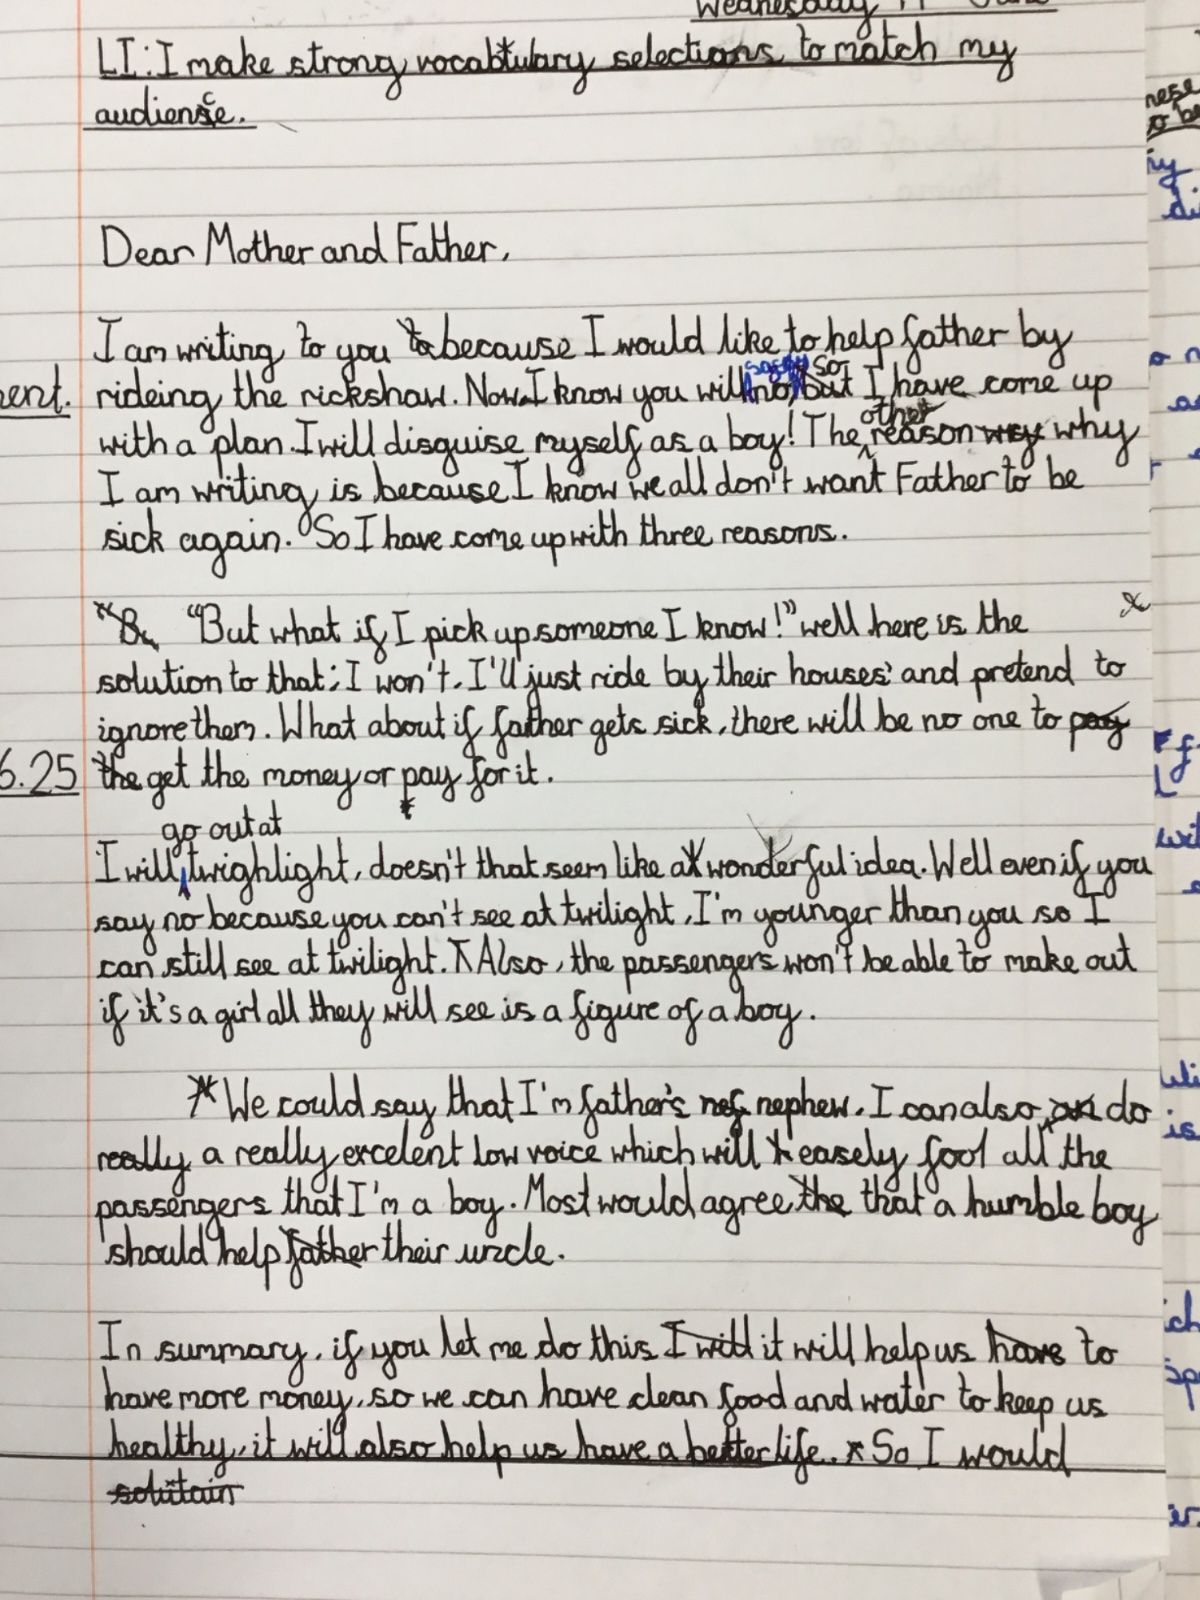 Wednesday
LI: I make strong vocabulary selections to match my
audience.
Dear Mother and Father,
I am writing to you to because I would like to help father by
rideing the rickshaw. Now I know you will say no, so but I have come up
ment.
with a plan. I will disguise myself as a boy! The other reason wey why
I am writing is because I know we all don't want Father to be
sick again. So I have come up with three reasons.
"But what if I pick up someone I know!" well here is the
solution to that; I won't. I'll just ride by their houses and pretend to
ignore them. What about if father gets sick, there will be no one to pay
6.25
the get the money or pay for it.
go out at
I will twighlight, doesn't that seem like a wonderful idea. Well even if you
say no because you can't see at twilight, I'm younger than you so I
can still see at twilight. Also, the passengers won't be able to make out
if it's a girl all they will see is a figure of a boy.
We could say that I'm father's nef nephew. I can also do
really a really excelent low voice which will easely fool all the
passengers that I'm a boy. Most would agree the that a humble boy
should help father their uncle.
In summary, if you let me do this I will it will help us have to
have more money, so we can have clean food and water to keep us
healthy, it will also help us have a better life. So I would